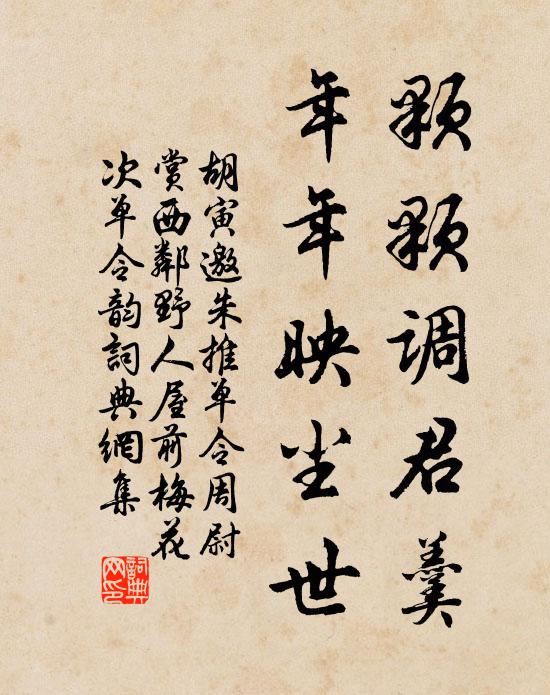 颗颗调君羹
年年映尘世
胡寅邀朱推单令周尉
赏西鄰野人屋前梅花
次单令韵詞典網集
詞典
网印